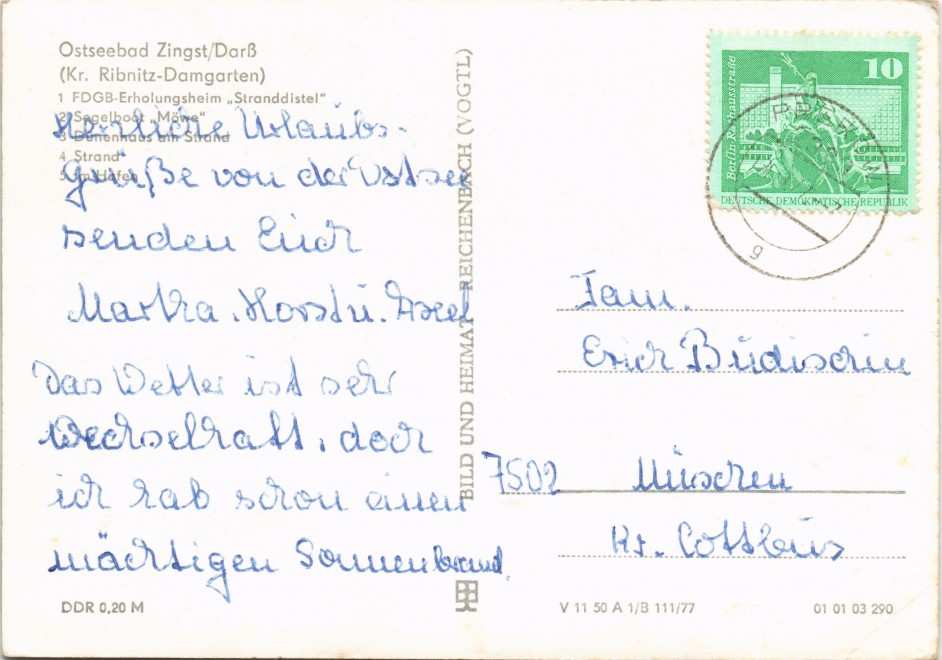 Ostseebad Zingst/Darß
(Kr. Ribnitz-Damgarten)
1 FDGB-Erholungsheim „Stranddistel"
2 Segelboot „Möwe"
3 Dünenhaus am Strand
4 Strand
5 Im Hafen
Herzliche Urlaubs-
grüße von der Ostsee
senden Euch
Martha, Horst u. Axel
Das Wetter ist sehr
Wechselhaft, doch
ich hab schon einen
mächtigen Sonnenbrand.
DDR 0,20 M
BILD UND HEIMAT REICHENBACH (VOGTL)
Berlin-Rathausstraße
10
DEUTSCHE DEMOKRATISCHE REPUBLIK
g
Fam.
Erich Büdischin
7502
Kr. Cottbus
V 11 50 A 1/B 111/77
01 01 03 290